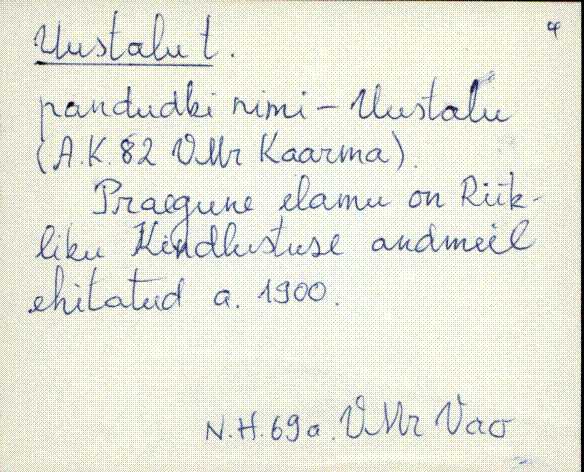 Uustalu t.
4
pandudki nimi - Uustalu
(A.K. 82 VMr Kaarma)
Praegune elamu on Riik-
liku Kindlustuse andmeil
ehitatud a. 1900.
N.H. 69a. VMr Vao